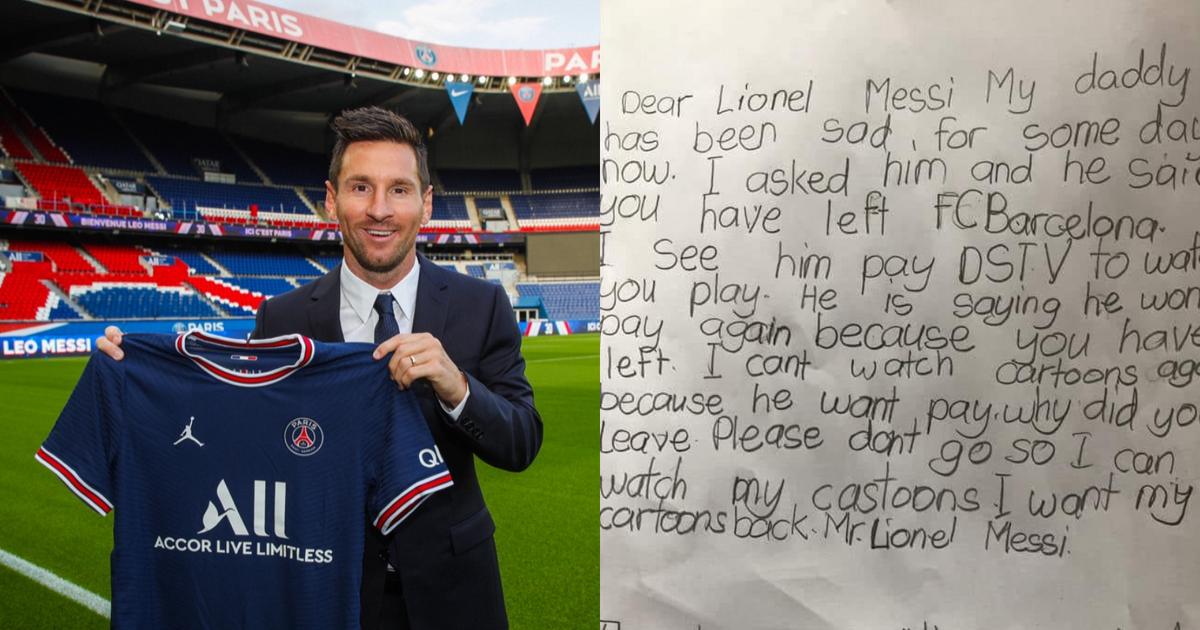 ST PARIS
PAR
AII
QATAR
BIENVENUE LEO MESSI
30
ICI C'EST PARIS
30
PARIS
LEO MESSI
PARIS
QA
All
ACCOR LIVE LIMITLESS
Dear Lionel Messi My daddy
has been sad, for some da
now. I asked him and he said
you have left FCBarcelona.
I See him pay DSTV to wat
you play. He is saying he won
pay again because you have
left. I cant watch cartoons aga
because he want pay.why did yo
Leave. Please dont go so I can
watch my castoons I want my
cartoons back. Mr. Lionel Messi.